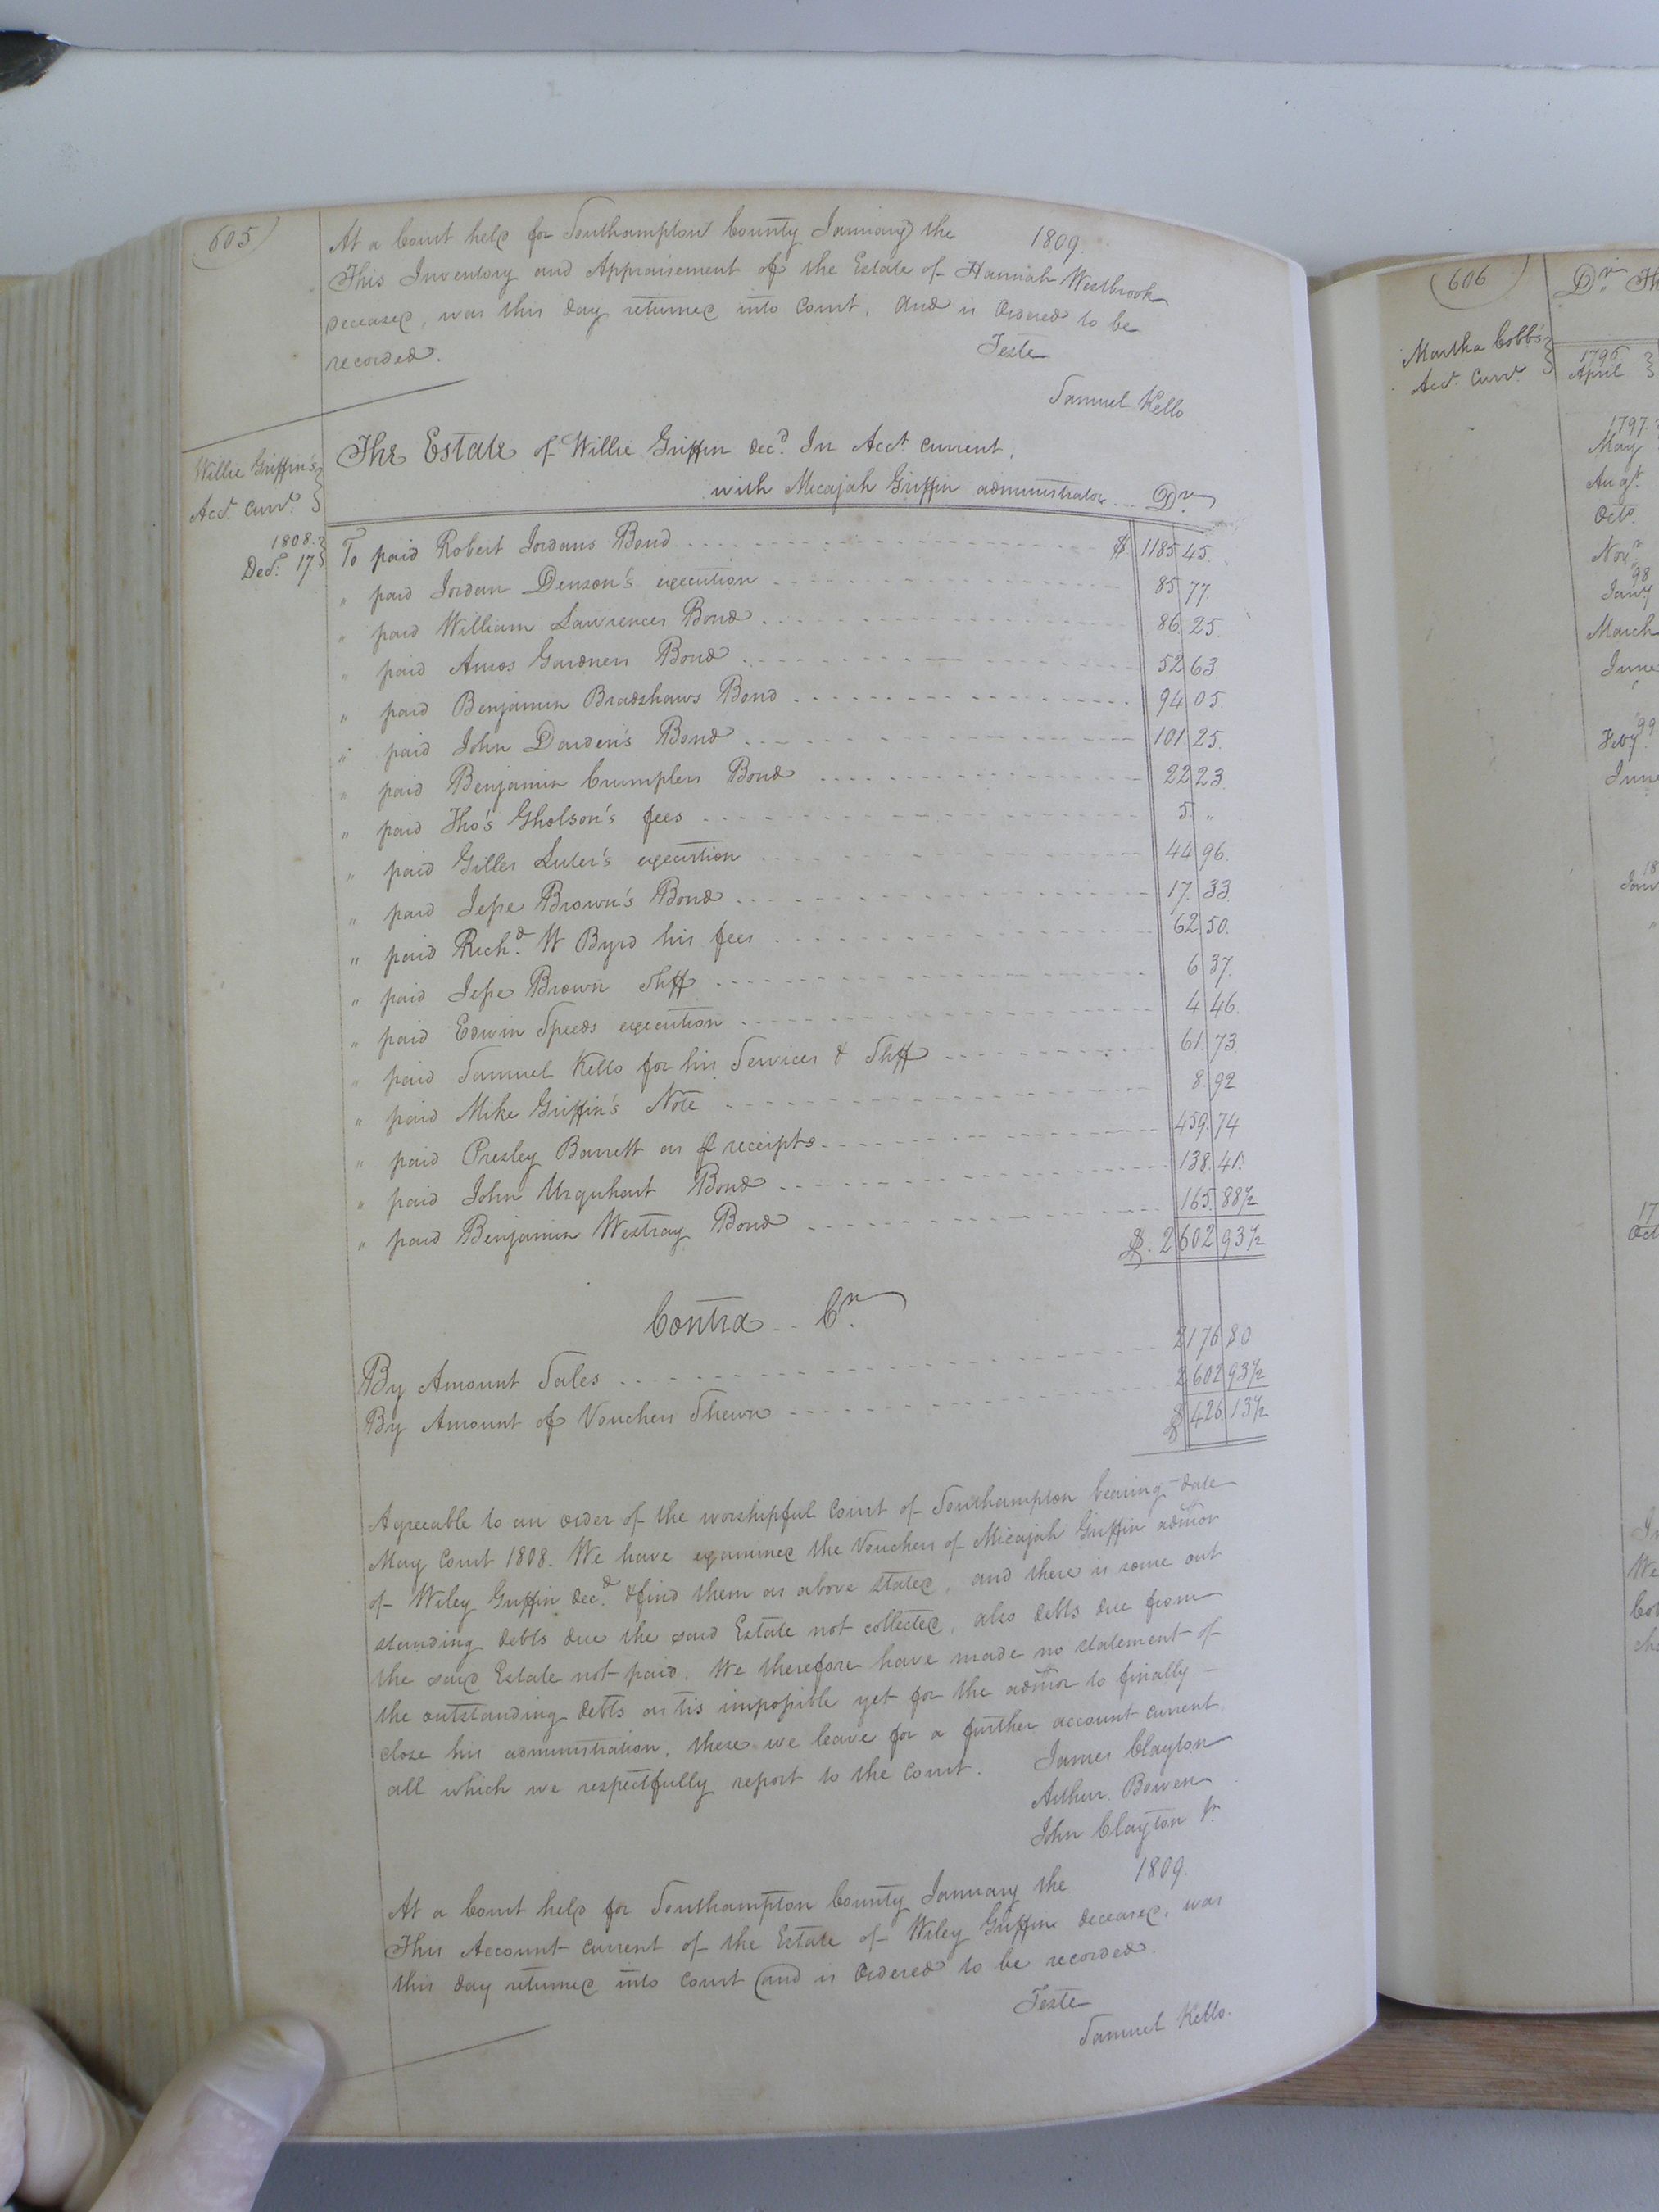 605
At a Court held for Southampton County January the 1809.
This Inventory and Appraisement of the Estate of Hannah Westbrook
deceased, was this day returned into Court, and is Ordered to be
recorded.
Teste
Samuel Kello
Willie Griffin's
Acct. Curr.t
1808.
Dec.r 17
The Estate of Willie Griffin dec.d In Acct. Current,
with Micajah Griffin administrator Dr.
To paid Robert Jordans Bond $ 1185 45.
" paid Jordan Denson's execution 85 77.
" paid William Lawrences Bond 86 25.
" paid Amos Gardners Bond 52 63.
" paid Benjamin Bradshaws Bond 94 05.
" paid John Darden's Bond 101 25.
" paid Benjamin Crumplers Bond 22 23.
" paid Tho's Gholson's fees 5 "
" paid Gilles Luter's execution 44 96.
" paid Jesse Brown's Bond 17. 33.
" paid Rich.d W Byrd his fees 62 50.
" paid Jesse Brown Shff 6 37.
" paid Edwin Speeds execution 4 46.
" paid Samuel Kello for his Services & Shff 61. 73.
" paid Mike Griffin's Note 8. 92
" paid Presley Barrett as P receipts 459. 74
" paid John Urquhart Bond 138. 41.
" paid Benjamin Westray Bond 165. 88 1/2
$. 2602 93 1/2
Contra Cr.
By Amount Sales 2176 80
By Amount of Vouchers Shewn 2602 93 1/2
$ 426 13 1/2
Agreeable to an order of the worshipful Court of Southampton bearing date
May Court 1808. We have examined the Vouchers of Micajah Griffin admor
of Wiley Griffin dec.d & find them as above stated, and there is some out
standing debts due the said Estate not collected, also debts due from
the said Estate not paid. We therefore have made no statement of
the outstanding debts as tis impossible yet for the admor to finally
close his administration, these we leave for a further account current
all which we respectfully report to the Court. James Clayton
Arthur Bowen
John Clayton Jr.
At a Court held for Southampton County January the 1809.
This Account current of the Estate of Wiley Griffin deceased, was
this day returned into Court and is Ordered to be recorded.
Teste
Samuel Kello.
606
Dr. Th
Martha Cobb's
Acct. Curr.t
1796
April
1797
May
Aug.t
Octo.
Nov.r
98
Jany
March
June
99
Feby
June
18
Jan
17
Oct
We